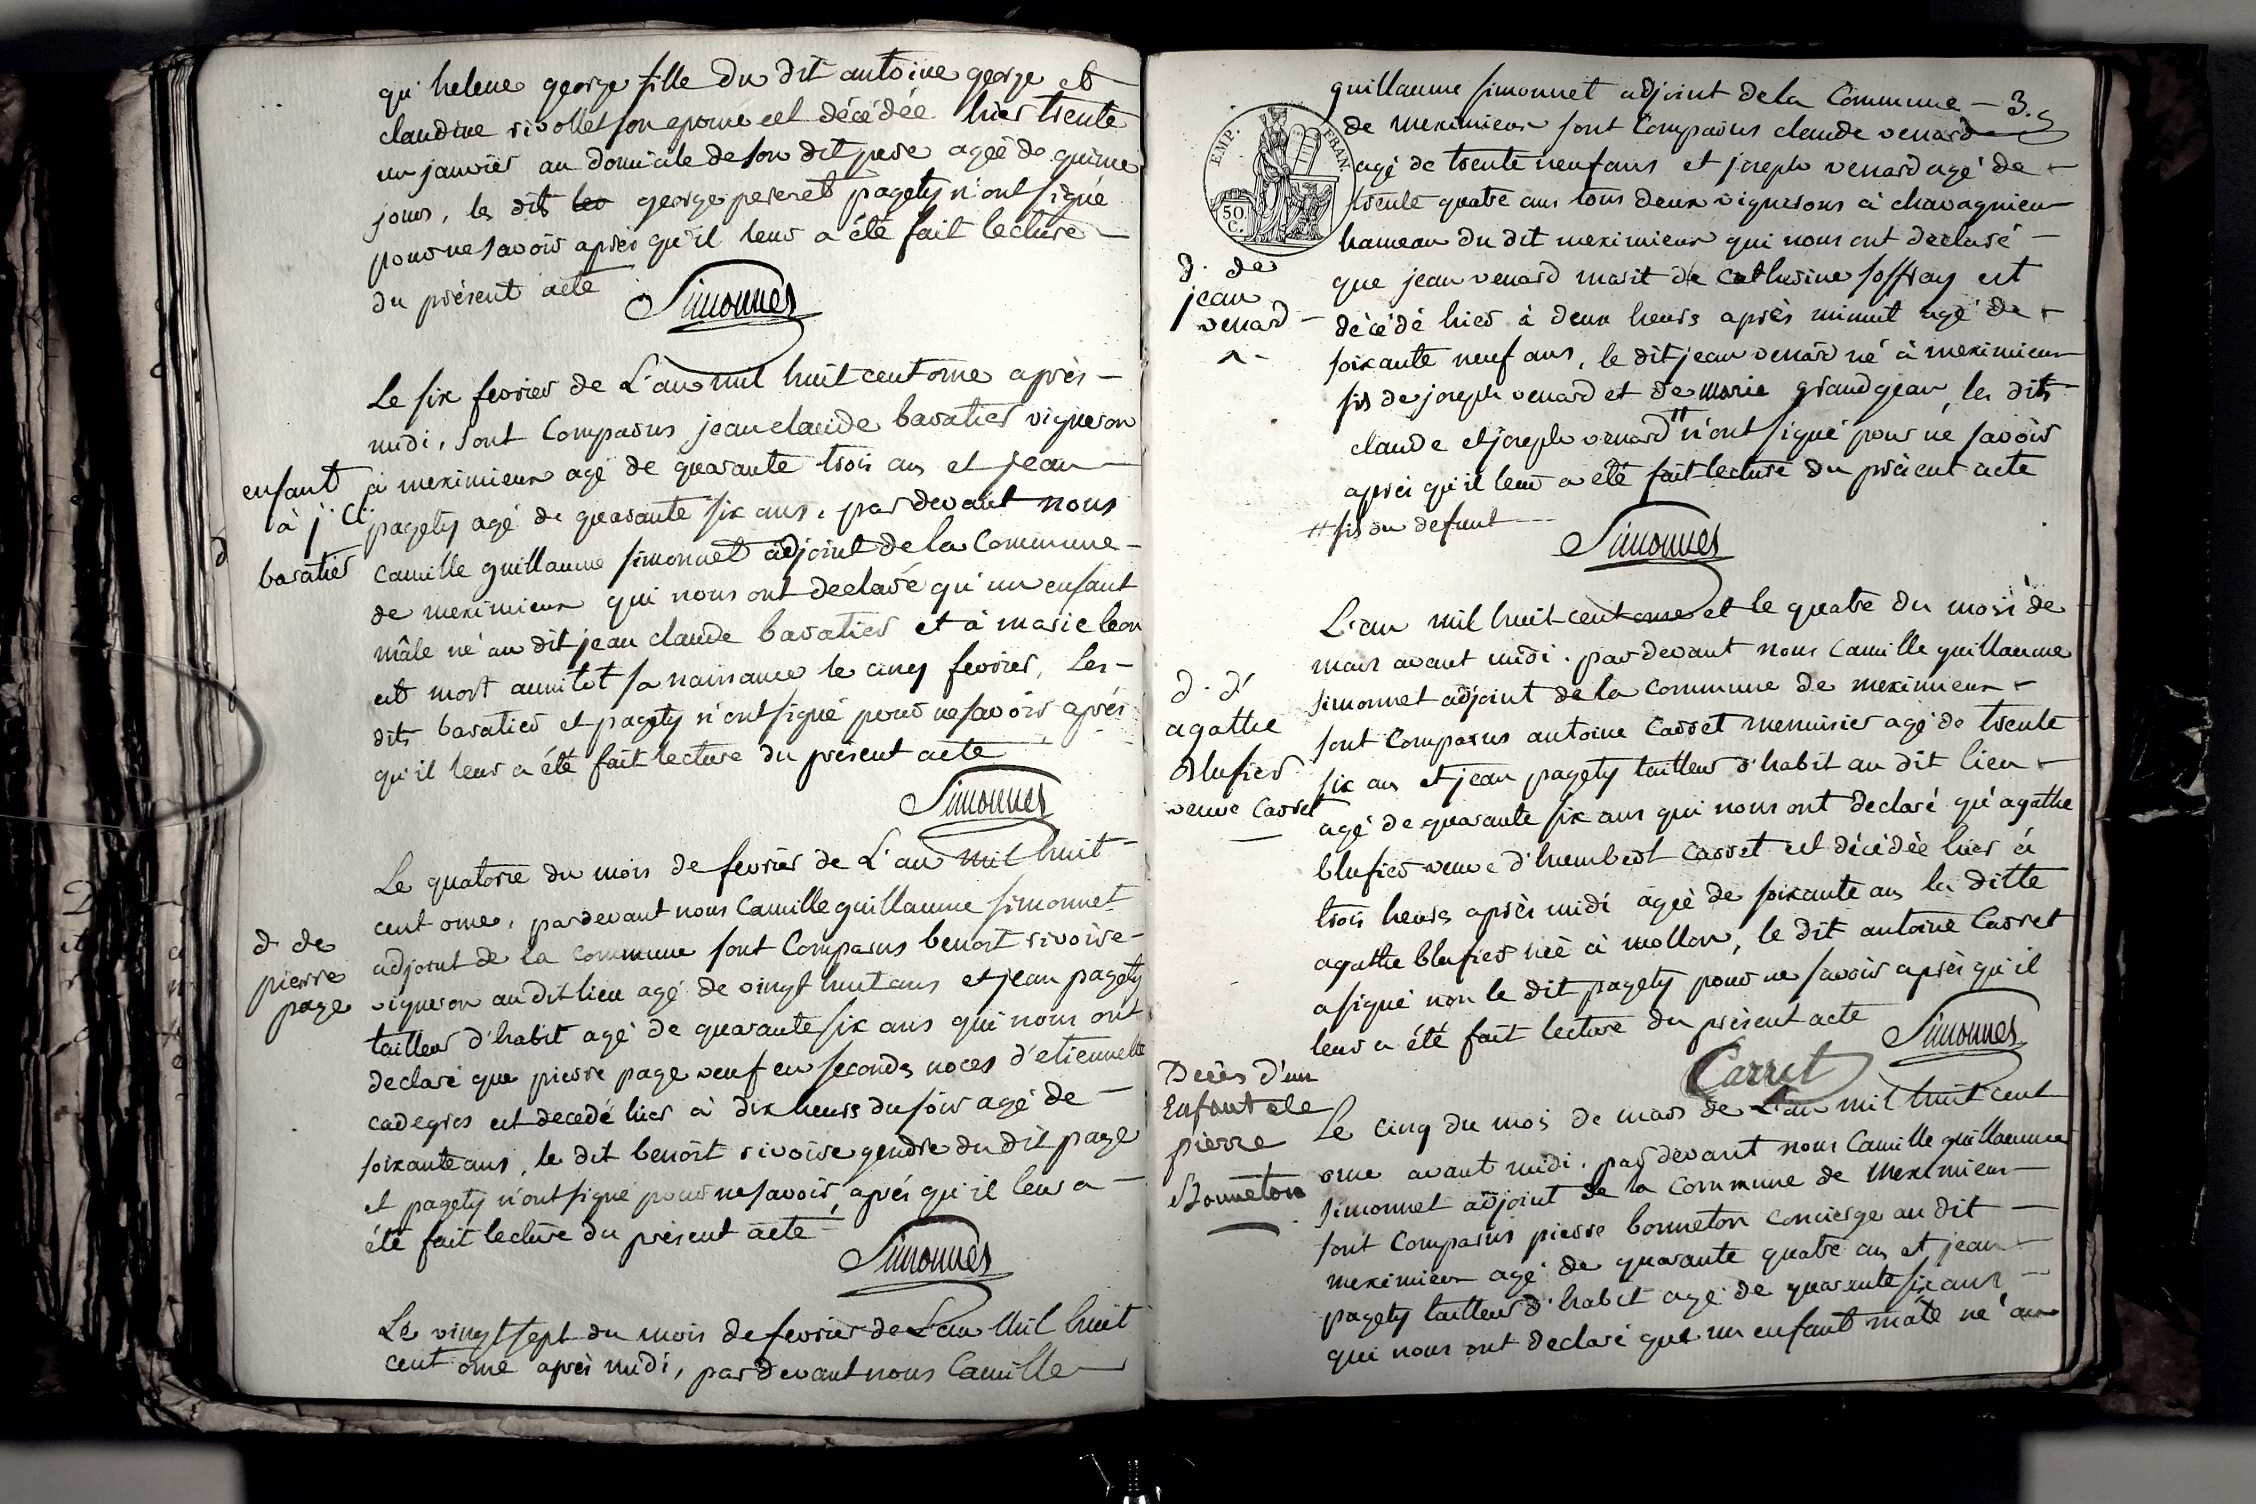 qu'helene george fille du dit antoine george et
claudine rivollet son epouse est décédée hier trente
un janvier au domicile de son dit pere agée de quinze
jours, les dits george pere et pagety n'ont signé
pour ne savoir après qu'il leur a été fait lecture
du présent acte
Simonnet
Le six fevrier de L'an mil huit cent onze après
midi, sont Comparus jean claude baratier vigneron
à meximieux agé de quarante trois ans et jean
pagety agé de quarante six ans, par devant nous
camille guillaume simonnet adjoint de la Commune
de meximieux qui nous ont declaré qu'un enfant
mâle né au dit jean claude baratier et à marie leon
est mort aussitot sa naissance le cinq fevrier, Les
dits baratier et pagety n'ont signé pour ne savoir aprés
qu'il leur a été fait lecture du présent acte
enfant
à j. Cl.
d
baratier
Simonnet
Le quatorze du mois de fevrier de L'an mil huit
cent onze, pardevant nous Camille guillaume simonnet
adjoint de la commune sont Comparus benoit rivoire
vigneron au dit lieu agé de vingt huit ans et jean pagety
tailleur d'habit agé de quarante six ans qui nous ont
declaré que pierre page veuf en secondes noces d'etiennette
cadegros est decedé hier à dix heures du soir agé de
soixante ans, le dit benoit rivoire gendre du dit page
et pagety n'ont signé pour ne savoir, aprés qu'il leur a
été fait lecture du présent acte
d. de
pierre
page
Simonnet
Le vingt sept du mois de fevrier de L'an Mil huit
cent onze après midi, pardevant nous Camille
guillaume simonnet adjoint de la Commune 3.
de meximieux sont Comparus claude venard
agé de trente neuf ans et joseph venard agé de
trente quatre ans tous deux vignerons à chavagnieu
hameau du dit meximieux qui nous ont declaré
que jean venard marit de Catherine joffray est
décédé hier à deux heures après minuit agé de
soixante neuf ans, le dit jean venard né à meximieux
fils de joseph venard et de marie grandjean, les dits
claude et joseph venard // n'ont signé pour ne savoir
après qu'il leur a été fait lecture du présent acte
// fils du defunt
EMP. FRAN.
50 C.
d. de
jean
venard
Simonnet
L'an mil huit cent onze et le quatre du mois de
mars avant midi. par devant nous Camille guillaume
simonnet adjoint de la commune de meximieux
sont Comparus antoine Carret menuisier agé de trente
six ans et jean pagety tailleur d'habit au dit lieu
agé de quarante six ans qui nous ont declaré qu'agathe
blufier veuve d'humbert carret est décédée hier à
trois heures après midi agée de soixante ans la ditte
agathe blufier née à mollon, le dit antoine Carret
a signé non le dit pagety pour ne savoir après qu'il
leur a été fait lecture du présent acte
d. d'
agathe
blufier
veuve Carret
Simonnet
Carret
Le cinq du mois de mars de L'an mil huit cent
onze avant midi. par devant nous Camille guillaume
simonnet adjoint de la Commune de meximieux
sont Comparus pierre bonneton concierge au dit
meximieux agé de quarante quatre ans et jean
pagety tailleur d'habit agé de quarante six ans
qui nous ont declaré que un enfant mâle né au
Decès d'un
Enfant de
pierre
Bonneton